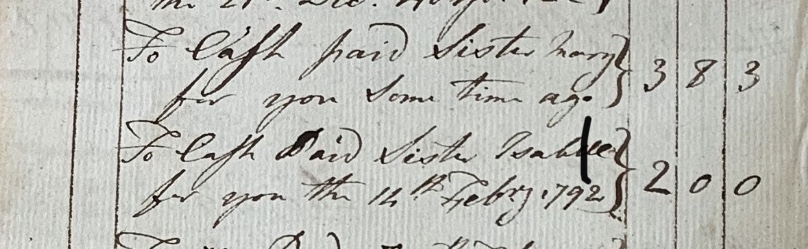 To Cash paid Sister Mary } 3 8 3
for you Some time ago
To Cash Paid Sister Isabell } 2 0 0
for you the 14th Febry. 1792